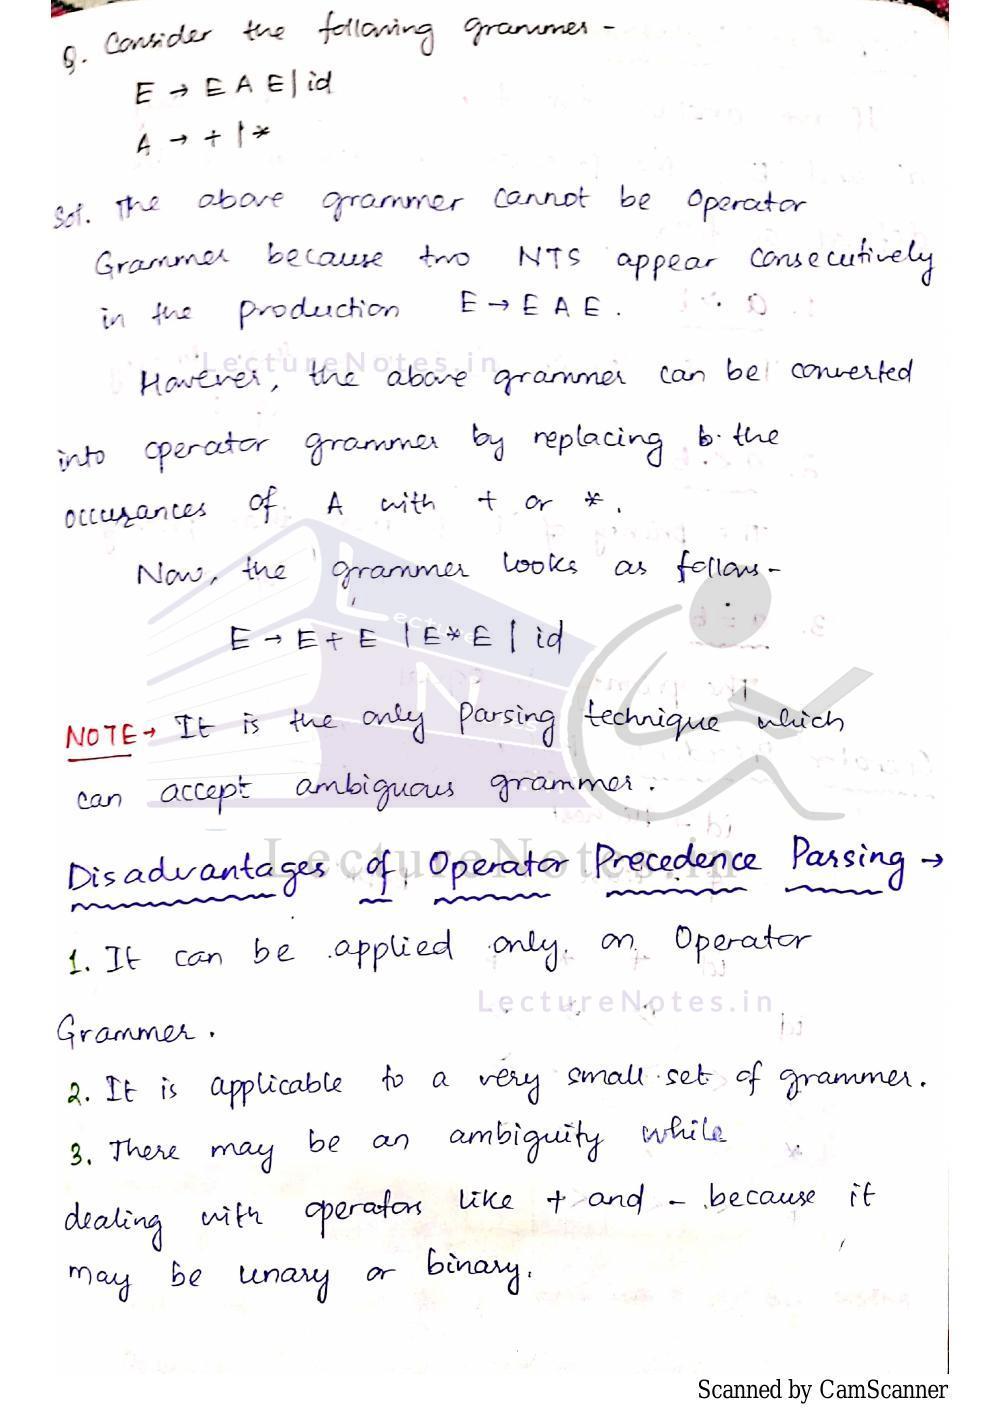 Q. Consider the following grammer -
E → E A E | id
A → + | *
Sol. The above grammer cannot be Operator
Grammer because two NTS appear consecutively
in the production E → E A E .
LectureNotes.in
However, the above grammer can be converted
into operator grammer by replacing the
occurances of A with + or * .
Now, the grammer looks as follows -
E → E + E | E * E | id
Lecture
N
NOTE → It is the only Parsing technique which
can accept ambiguous grammer .
LectureNotes.in
Disadvantages of Operator Precedence Parsing →
1. It can be applied only on Operator
LectureNotes.in
Grammer .
2. It is applicable to a very small set of grammer .
3. There may be an ambiguity while
dealing with operators like + and - because it
may be unary or binary .
Scanned by CamScanner